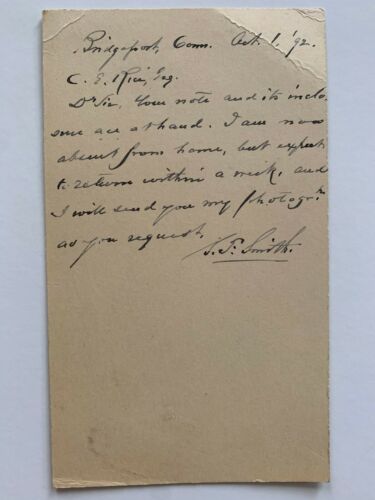 Bridgeport, Conn. Oct. 1, '92.
C. E. Rice, Esq.
Dr Sir, Your note and its inclo-
sure are at hand. I am now
absent from home, but expect
to return within a week, and
I will send you my photogrh
as you request.
S. F. Smith.